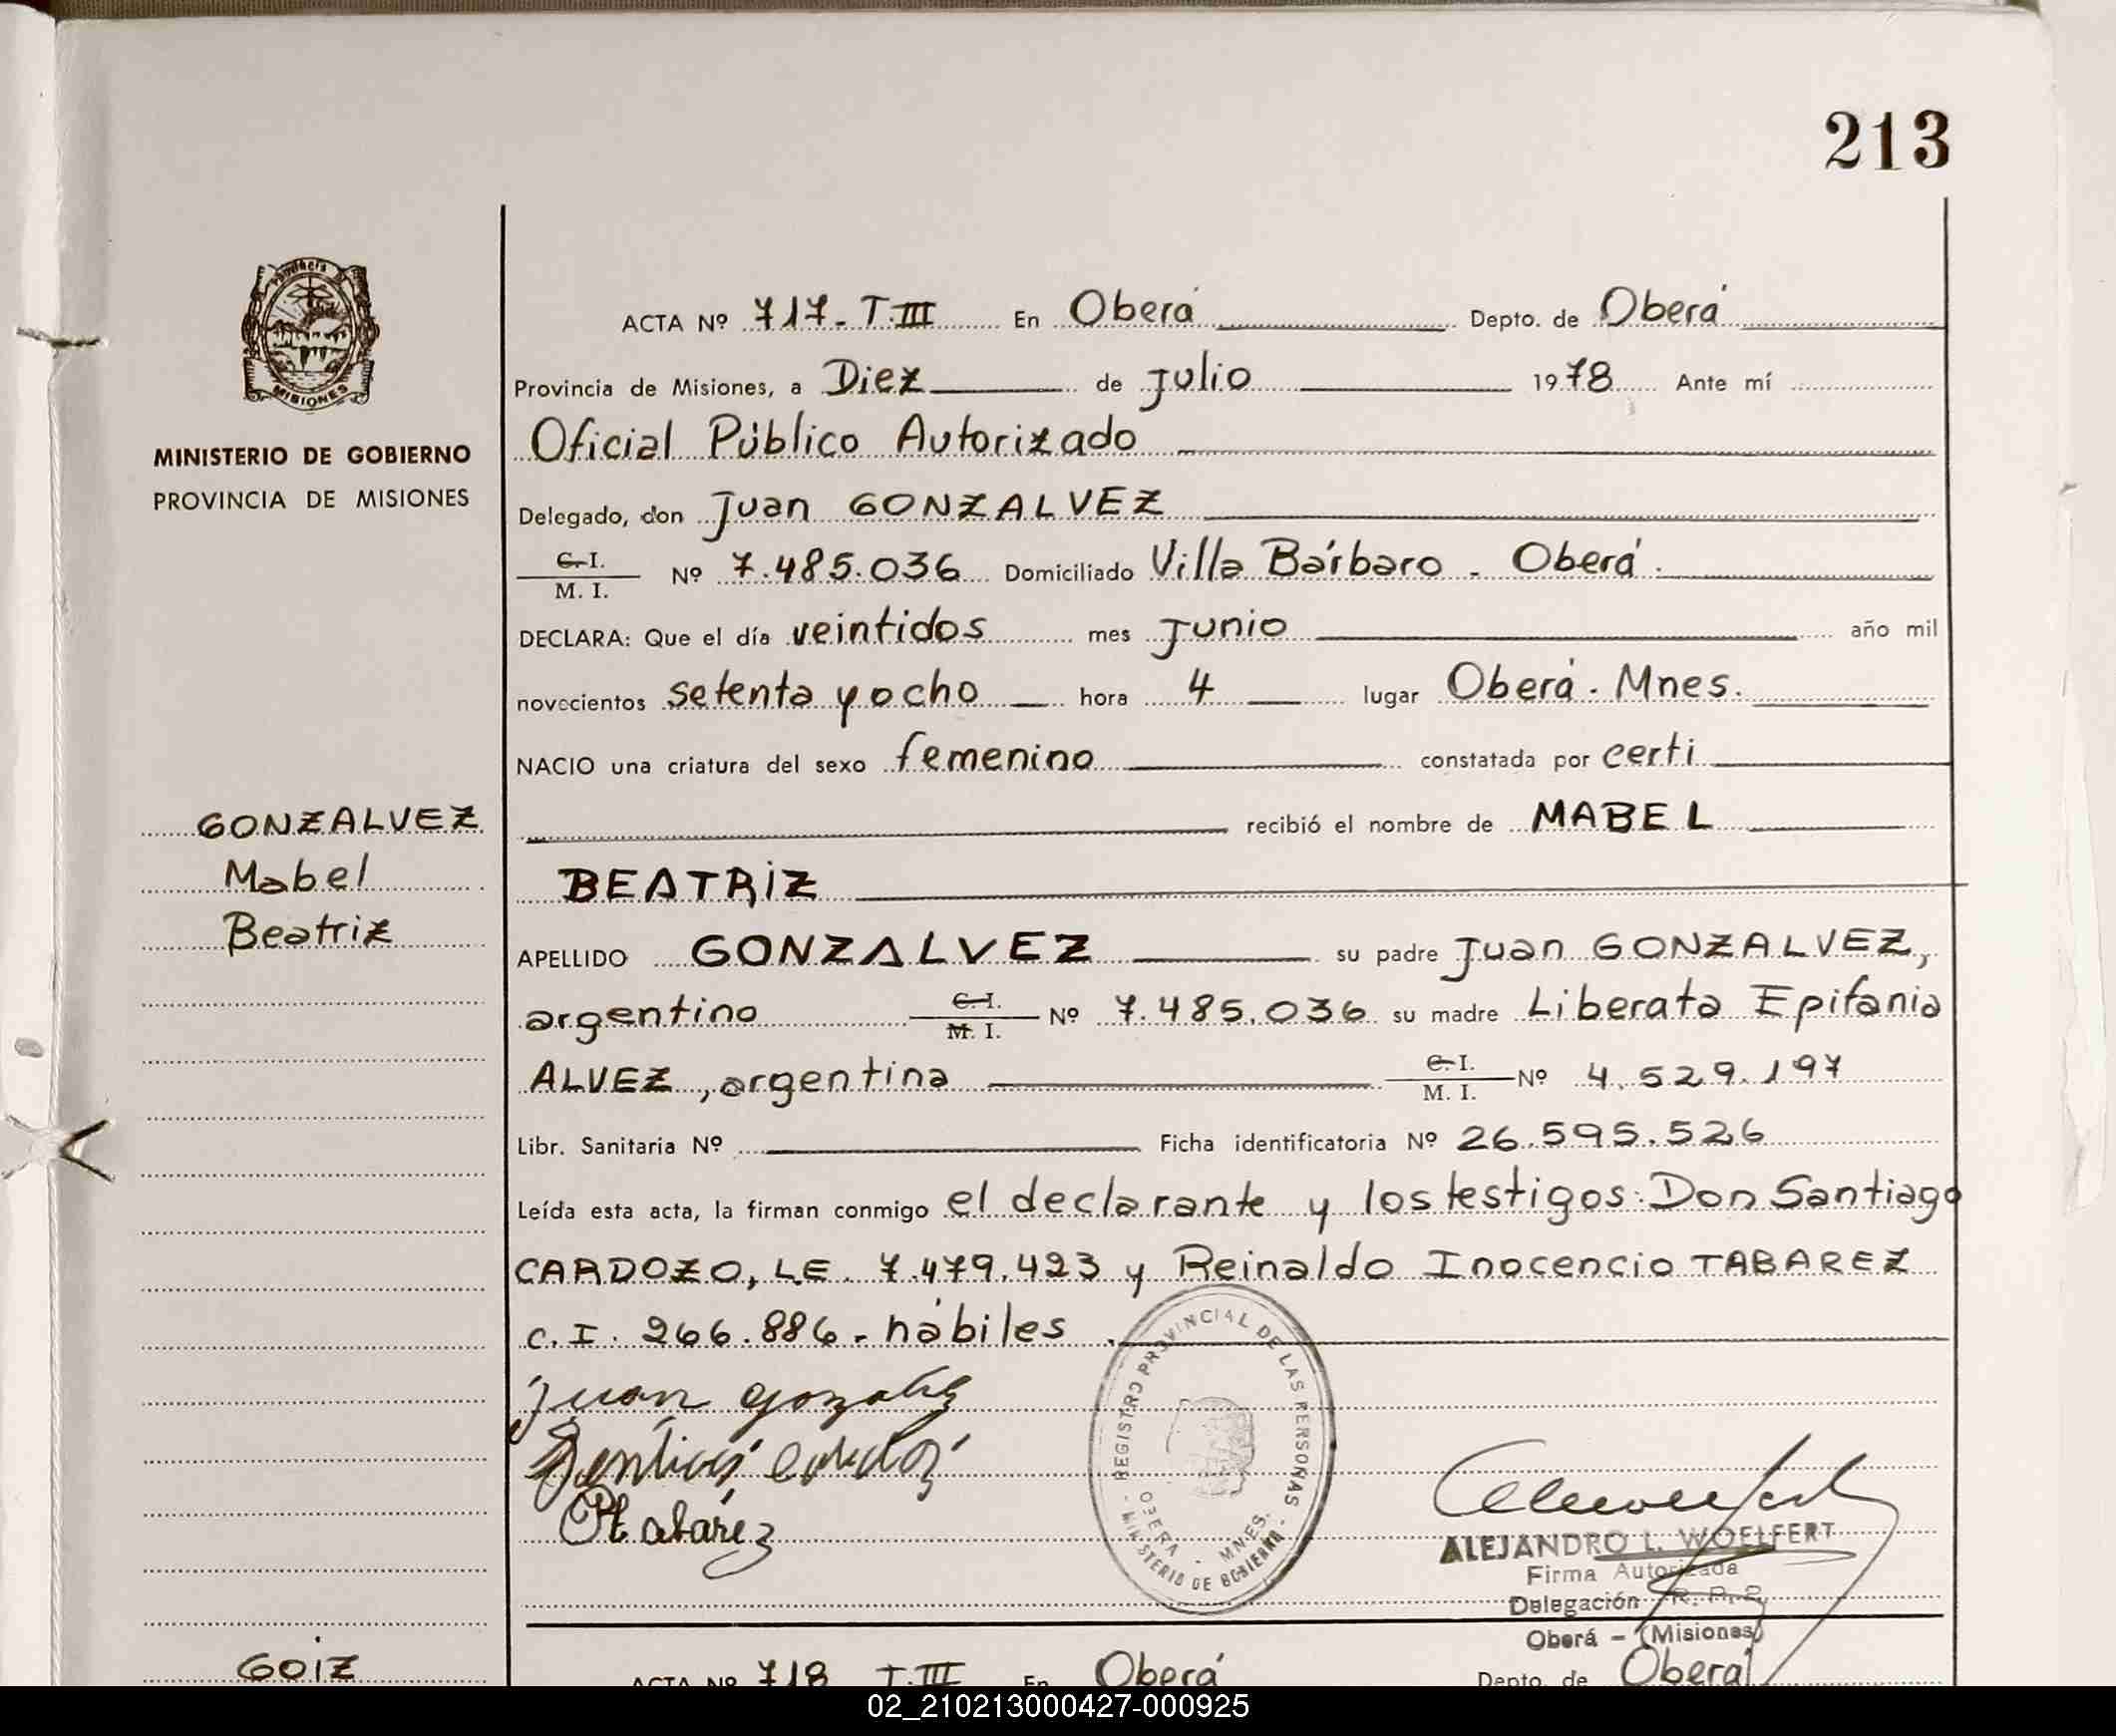 213
PROVINCIA DE
MISIONES
MINISTERIO DE GOBIERNO
PROVINCIA DE MISIONES
GONZALVEZ
Mabel
Beatriz
ACTA Nº 717-T.III En Oberá Depto. de Oberá
Provincia de Misiones, a Diez de Julio 1978 Ante mí
Oficial Público Autorizado
Delegado, don Juan GONZALVEZ
C.I.
M. I. Nº 7.485.036 Domiciliado Villa Bárbaro - Oberá.
DECLARA: Que el día veintidos mes Junio año mil
novecientos setenta y ocho hora 4 lugar Oberá. Mnes.
NACIO una criatura del sexo femenino constatada por certi
recibió el nombre de MABEL
BEATRIZ
APELLIDO GONZALVEZ su padre Juan GONZALVEZ,
argentino C.I. M. I. Nº 7.485.036 su madre Liberata Epifania
ALVEZ, argentina C.I. M. I. Nº 4.529.197
Libr. Sanitaria Nº Ficha identificatoria Nº 26.595.526
Leída esta acta, la firman conmigo el declarante y los testigos: Don Santiago
CARDOZO, L.E. 7.479.423 y Reinaldo Inocencio TABAREZ
C.I. 266.886.- hábiles.
Juan
Rtabárez
REGISTRO PROVINCIAL DE LAS PERSONAS
OBERA - MNES.
MINISTERIO DE GOBIERNO
ALEJANDRO L. WOELFERT
Firma Autorizada
Delegación R. P. P.
Oberá - (Misiones)
GOIZ
ACTA Nº 718 T.III En Oberá Depto. de Oberá
02_210213000427-000925